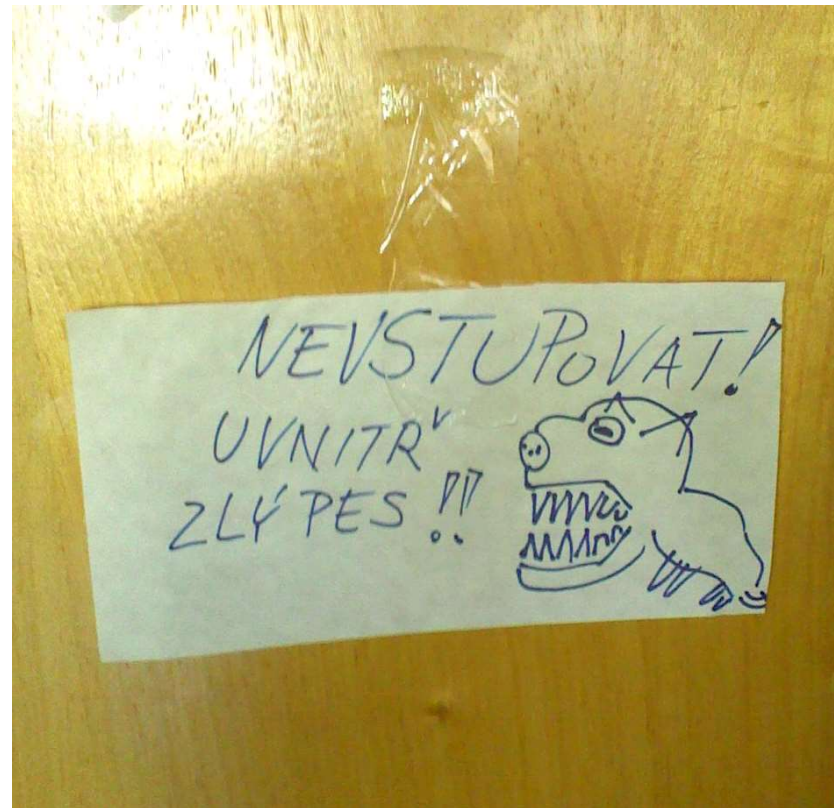 NEVSTUPOVAT!
UVNITŘ
ZLÝ PES!!